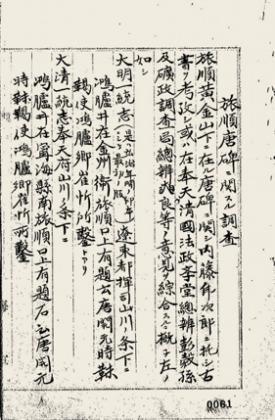 旅順唐碑ニ関スル調査
旅順黄金山下ニ在ル唐碑ニ関シ内藤虎次郎ニ托シ古
書ヲ考攷シ或ハ在奉天清國法政学堂総辦彭穀孫
及礦政調査局総辦爽良等ノ意見ヲ綜合スルニ概子左ノ
如シ
大明一統志
遼東都指揮司山川ノ条下ニ
鴻臚井在金州衛旅順口上有題公唐開元時
鞨使鴻臚卿崔忻所鑿トアリ
大清一統志奉天府山川ノ条下ニ
鴻臚井在寧海縣南旅順口上有題石云唐開元
時
鞨使鴻臚卿崔忻所鑿
0061